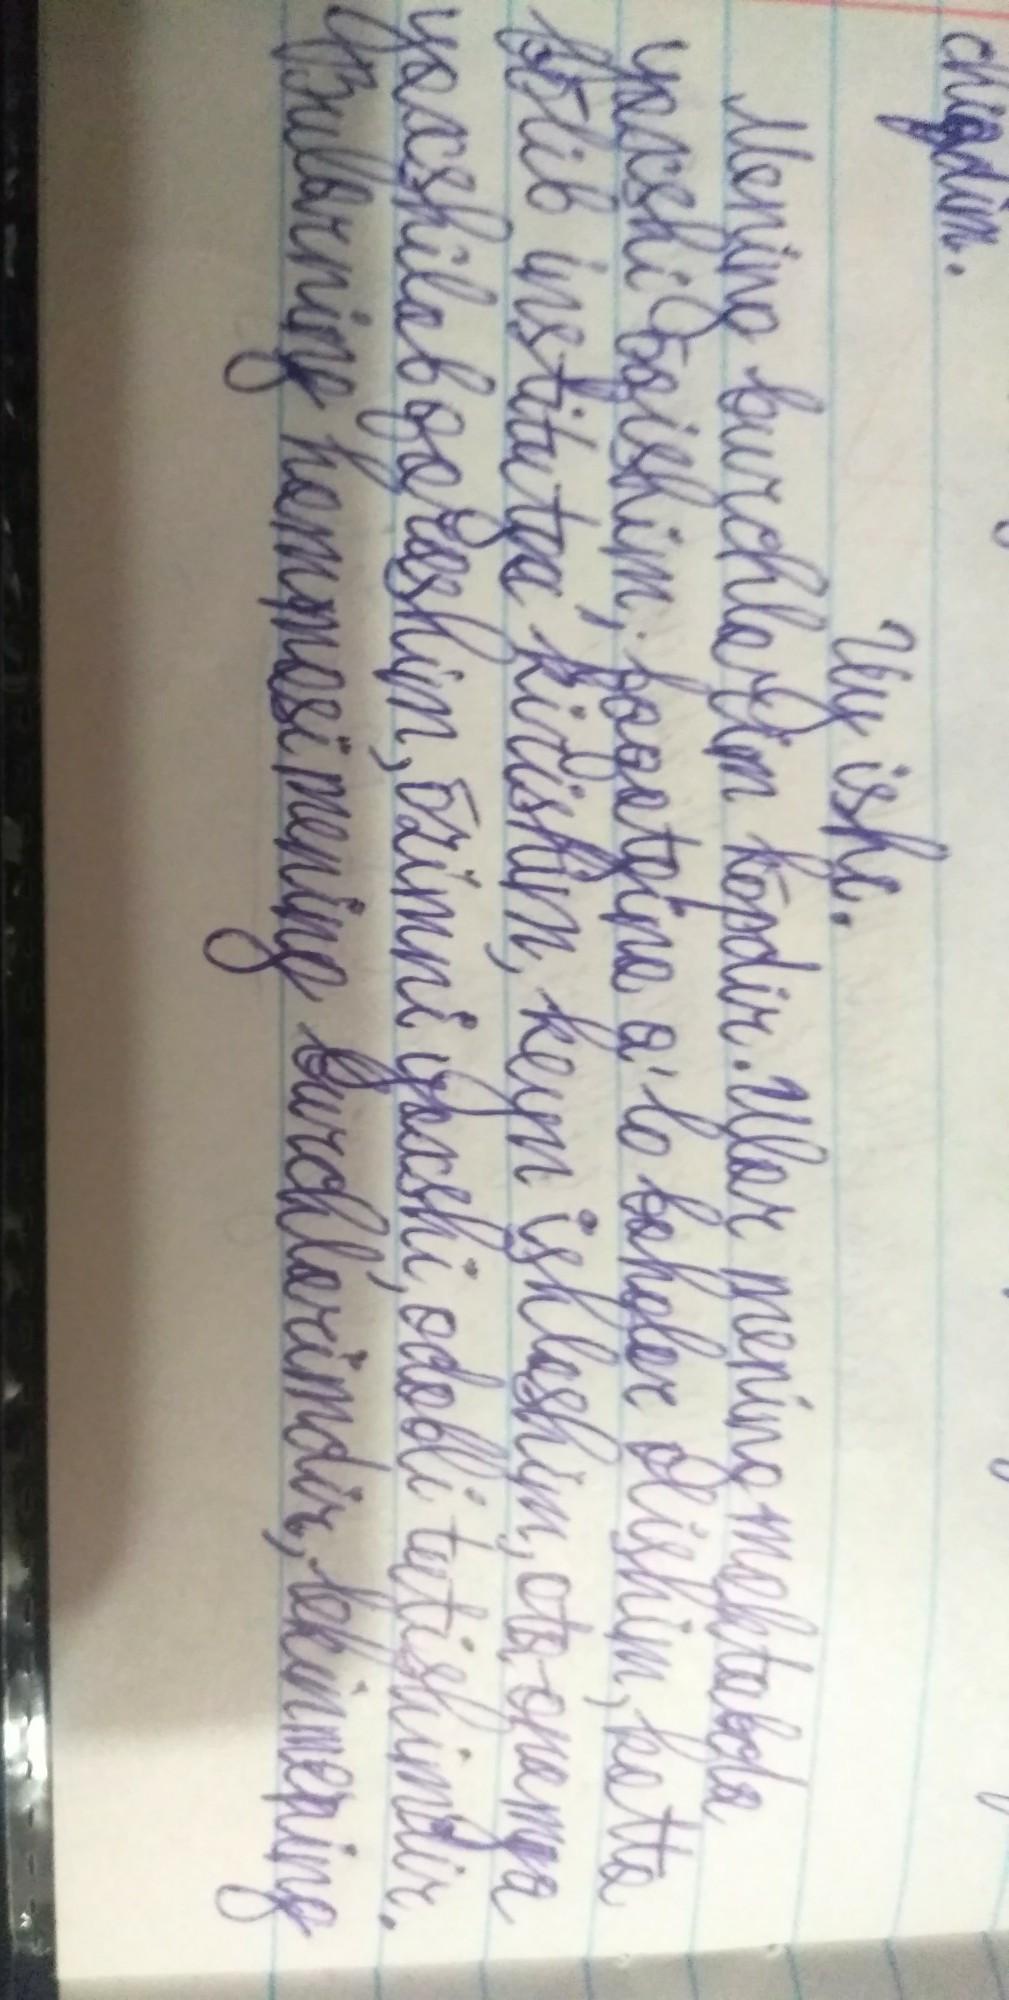 chiqdim.
Uy ishi.
Mening burchlarim kõpdir. Ular mening maktabda
yaxshi õqishim, faqatgina a'lo baholar olishim, katta
bõlib institutga kirishim, keyin ishlashim, ota-onamga
yaxshilab qarashim, õzimni yaxshi, odobli tutishimdir.
Bularning hammasi mening burchlarimdir, lekin mening